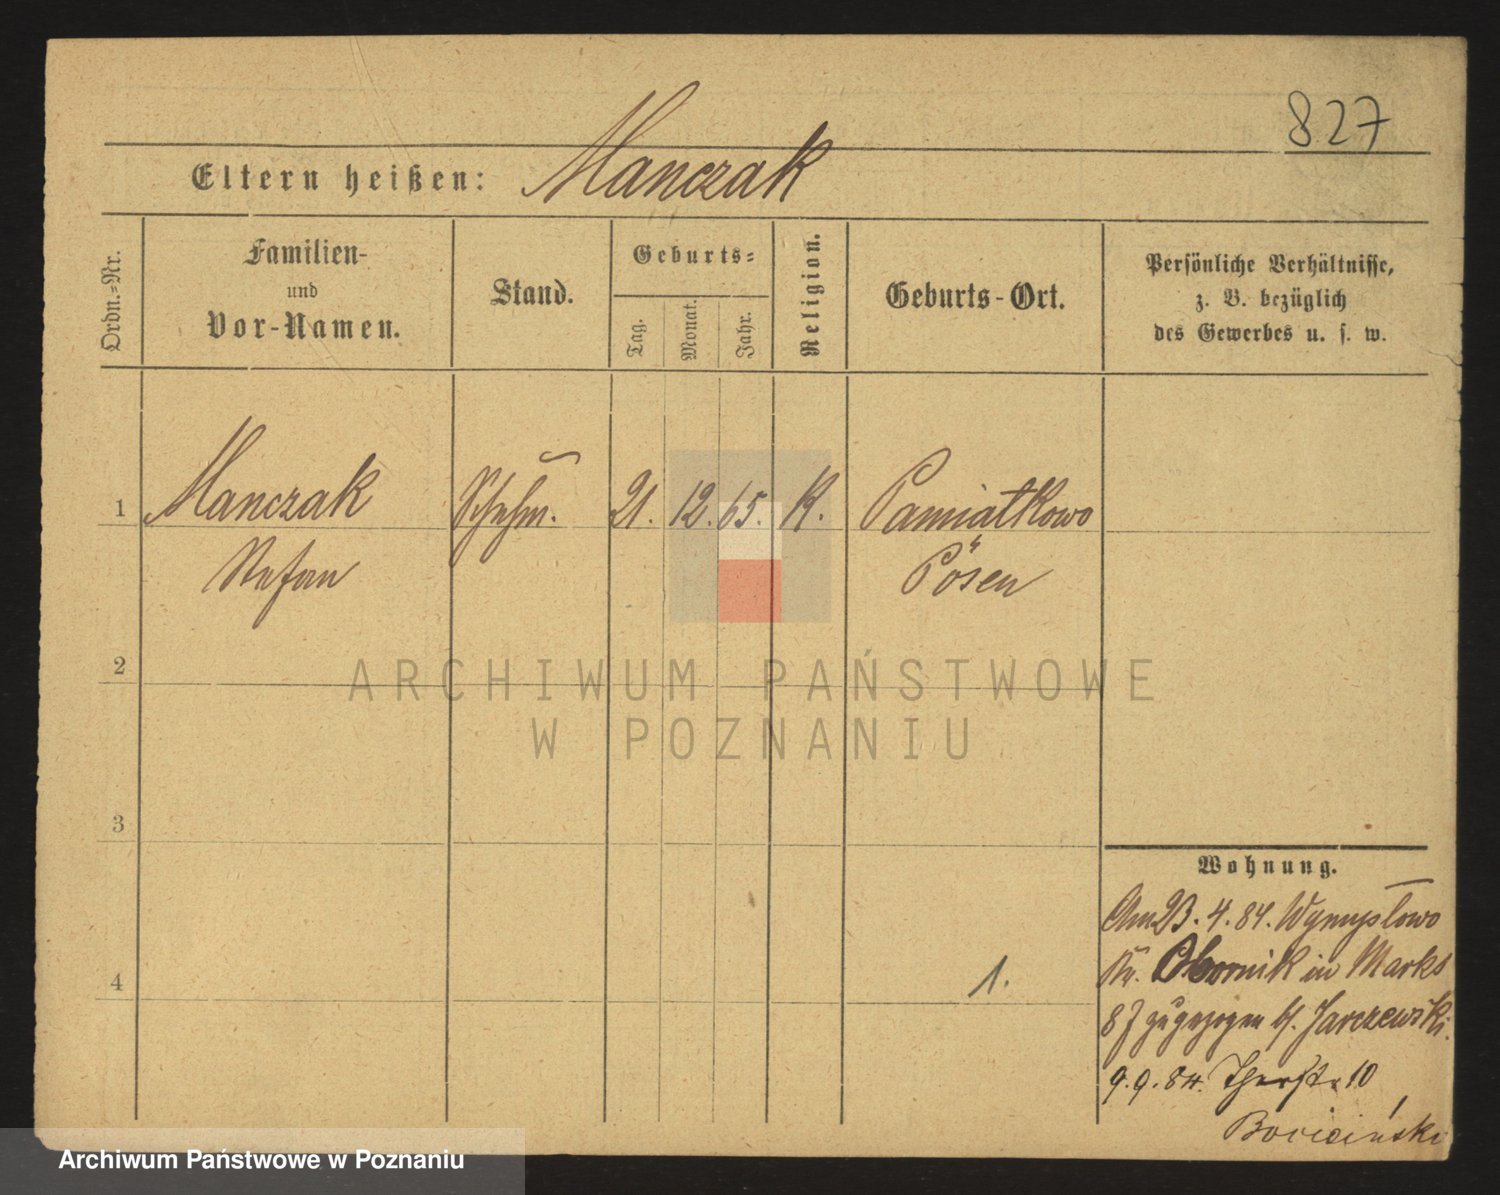 827
Eltern heißen: Manczak
Ordn.-Nr.
Familien-
und
Vor-Namen.
Stand.
Geburts-
Tag.
Monat.
Jahr.
Religion.
Geburts-Ort.
Persönliche Verhältnisse,
z. B. bezüglich
des Gewerbes u. s. w.
1 Manczak 21. 12. 65. K. Pamiatkowo
Stefan Posen
2
3
4
1.
Wohnung.
Am 23.4.84. Wymysłowo
Kr. Obornik in Markt
87 zugezogen b/. Jarczewski.
9.9.84. 10
ARCHIWUM PAŃSTWOWE
W POZNANIU
Archiwum Państwowe w Poznaniu